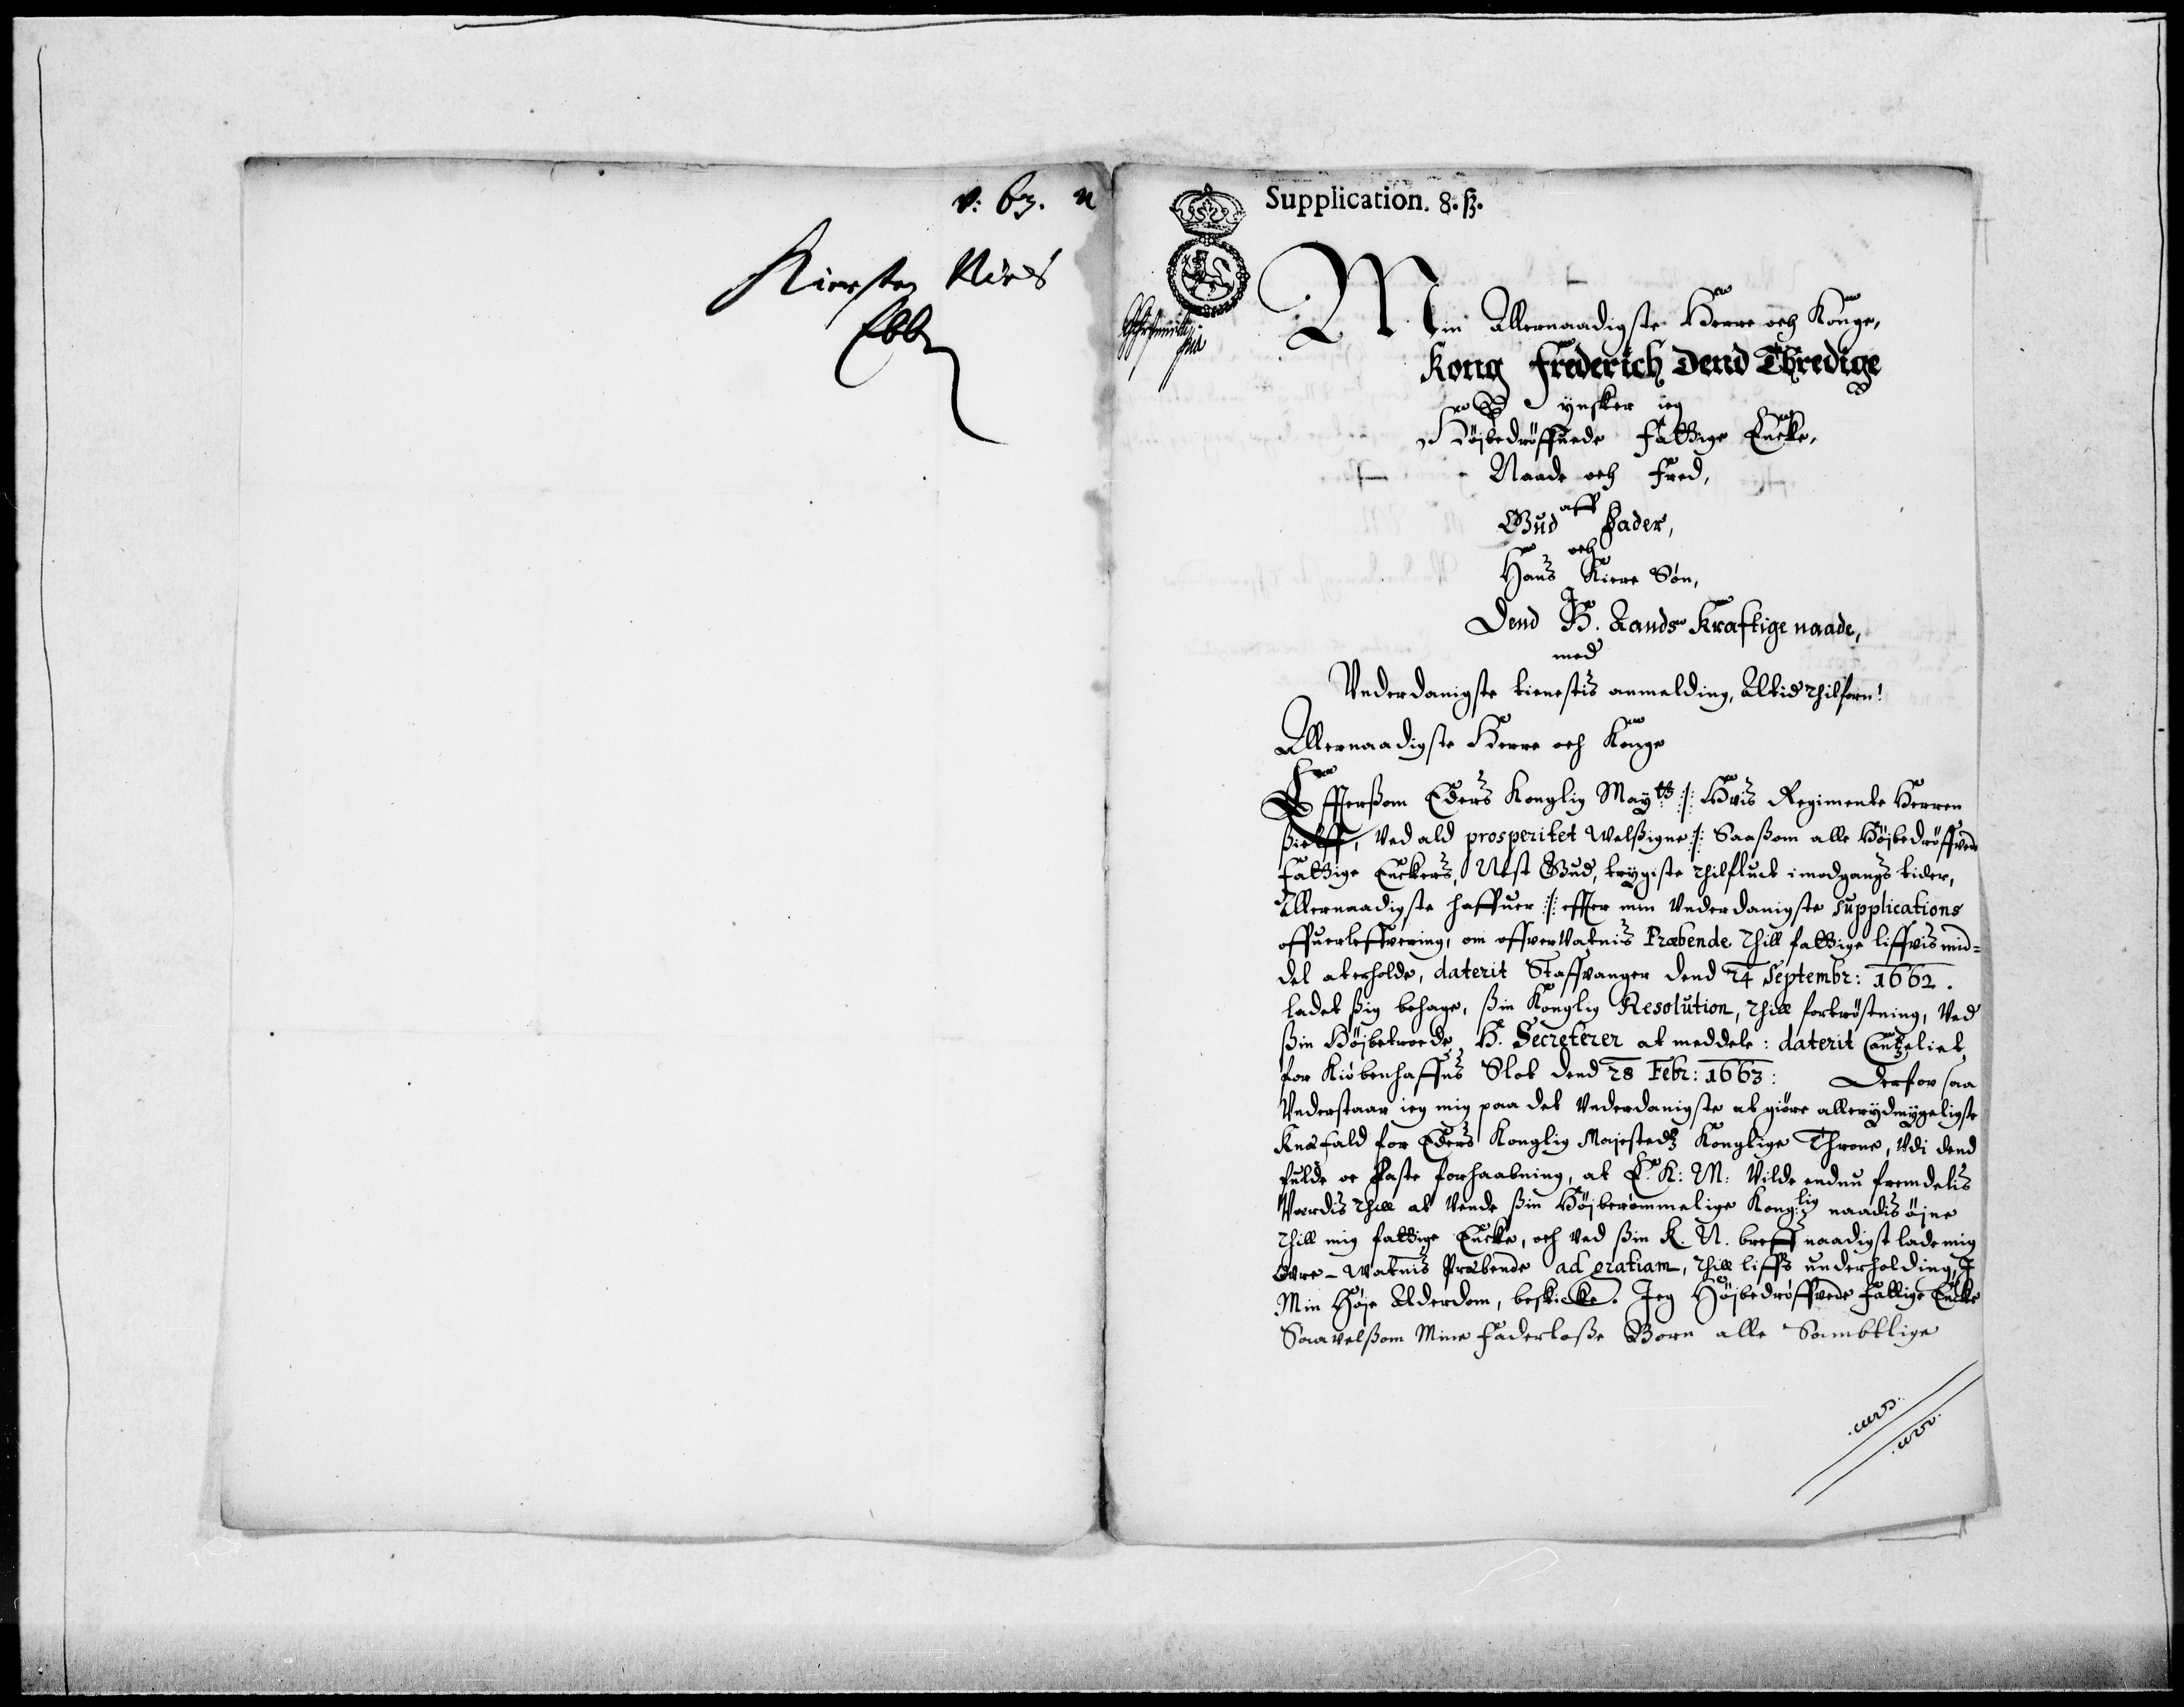 v: 63. n
Kiersten Niels
Ebb
Supplication. 8. ß.
Min Allernaadigste Herre och Konge,
Kong Frederich Dend Thredige
ynsker ieg
Höjbedröffuede fattige Encke,
Naade och Fred,
aff
Gud Fader,
och
Hans Kiere Sön,
I
Dend H. Aands Kraftige naade,
med
Vnderdanigste tienestis anmelding, Altid thilforn!
Allernaadigste Herre och Konge
Efftersom Eders Konglig Maytz :/: Hvis Regimente Herren
sielff, Ved ald prosperitet Welsigne :/: Saasom alle Höjbedröffvede
fattige Enckers, Nest Gud, trygiste thilfluct i modgangs tider,
Allernaadigste haffuer :/: effter min Vnderdanigste supplications
offuerleffvering, om offver Vatnis Præbende Thill fattige liffvis mid=
del at erholde, daterit Staffvanger dend 24 Septembr: 1662.
ladet sig behage, sin Konglig Resolution, Thill fortröstning, Ved
sin Höjbetroede H. Secreterer at meddele: daterit Cantzeliet
for Kiöbenhaffns Slot dend 28 Febr: 1663: Derfor saa
Vnderstaar ieg mig paa det Vnderdanigste at giöre allerydmygeligste
Knæfald for Eders Konglig Majestedtz Konglige Throne, Vdi dend
fulde oc faste forhaabning, at E. K: M: Vilde endnu fremdelis
Værdis Thill at Vende sin Höjberömmelige Kong:lig naadis öjne
Thill mig fattige Encke, och Ved sin K. N. breff naadigst lade mig
Övre-Watnis Præbende ad gratiam, Thill liffs underholding, I
Min Höje Alderdom, beskicke. Jeg Höjbedröffvede fattige Encke
Saavelsom Mine Faderlose Born alle Sambtlige